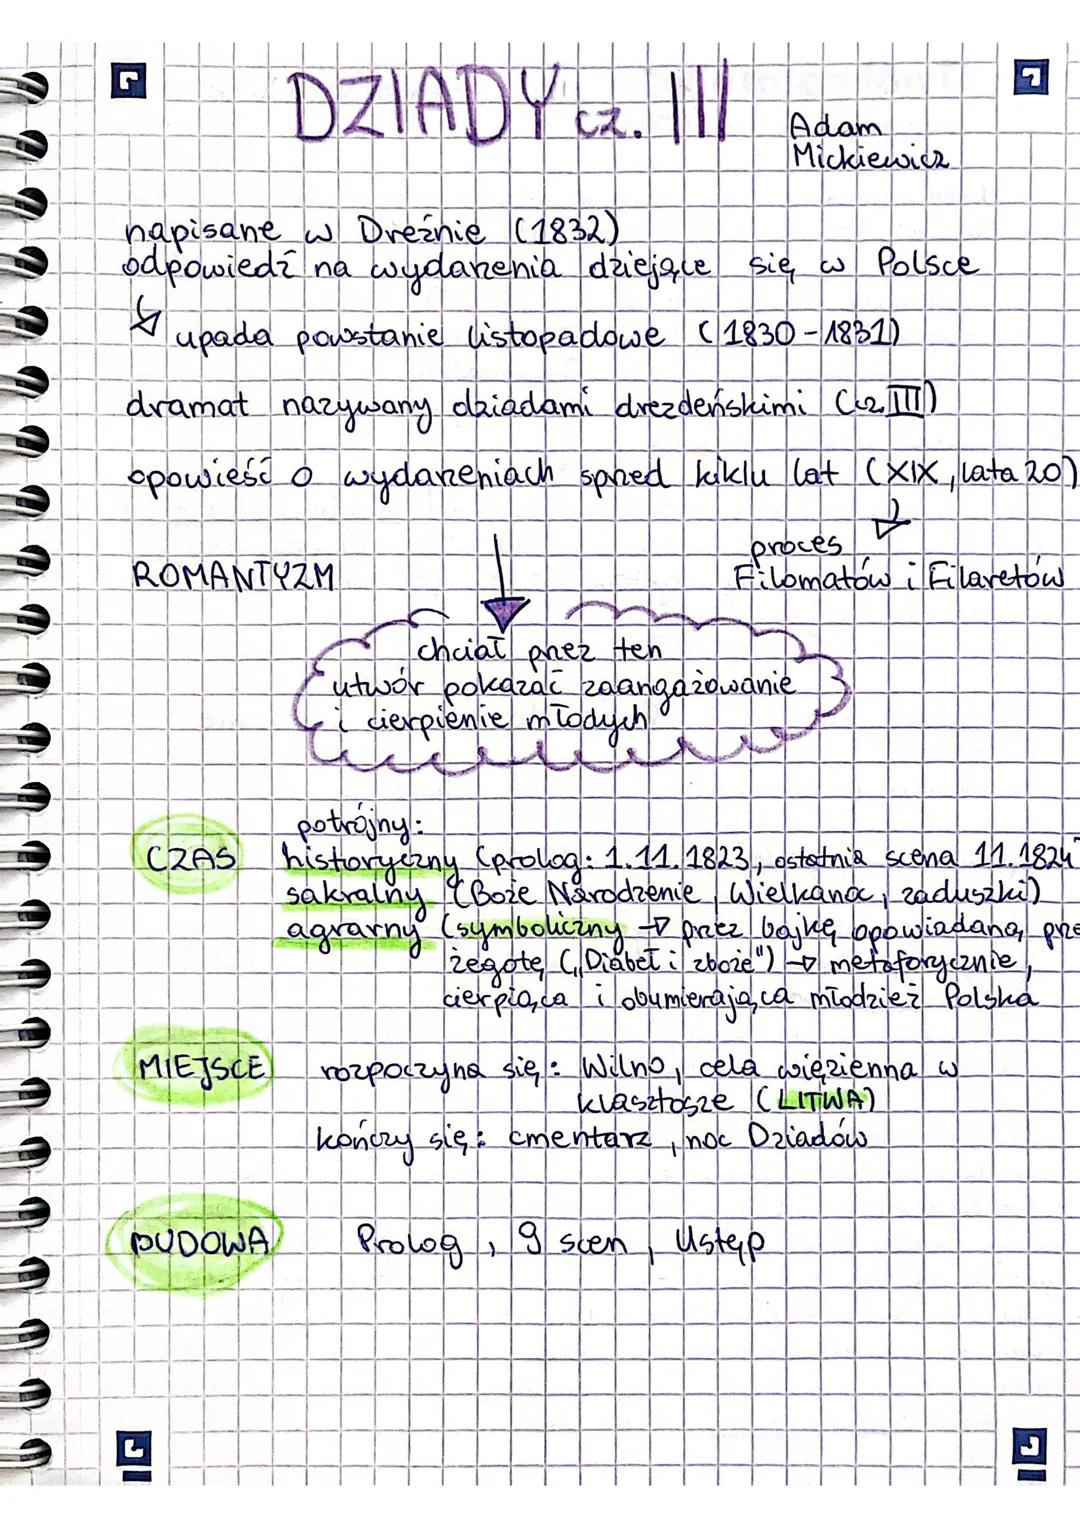 DZIADY cz. III
Adam
Mickiewicz
napisane w Dreźnie (1832)
odpowiedź na wydarzenia dziejące się w Polsce
upada powstanie listopadowe (1830-1831)
dramat nazywany dziadami drezdeńskimi (cz. III)
opowieść o wydarzeniach sprzed kiklu lat (XIX, lata 20)
proces
Filomatów i Filaretów
ROMANTYZM
chciał przez ten
utwór pokazać zaangażowanie
i cierpienie młodych
CZAS
potrójny:
historyczny (prolog: 1.11.1823, ostatnia scena 11.1824
sakralny (Boże Narodzenie, Wielkanoc, zaduszki)
agrarny (symboliczny → przez bajkę opowiadaną prze
żegotę („Diabeł i zboże") → metaforycznie,
cierpiąca i obumierająca młodzież Polska
MIEJSCE
rozpoczyna się: Wilno, cela więzienna w
klasztosze (LITWA)
kończy się: cmentarz, noc Dziadów
BUDOWA
Prolog, 9 scen, Ustęp